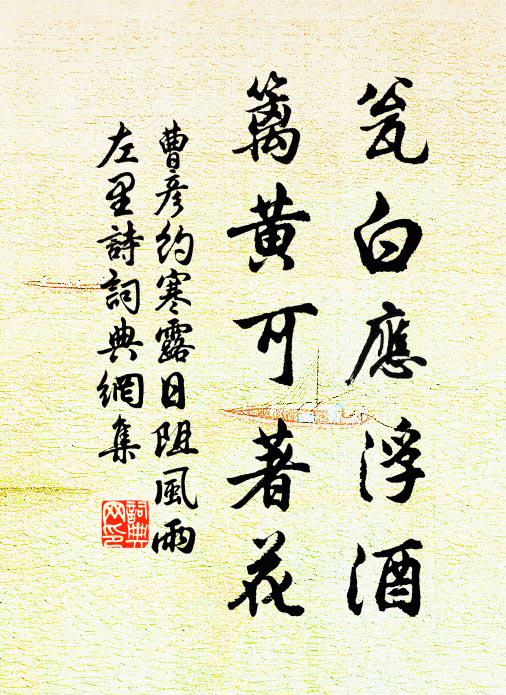 瓮白應浮酒
籬黄可著花
曹彦約寒露日阻風雨
左里詩詞典網集
詞典
网印